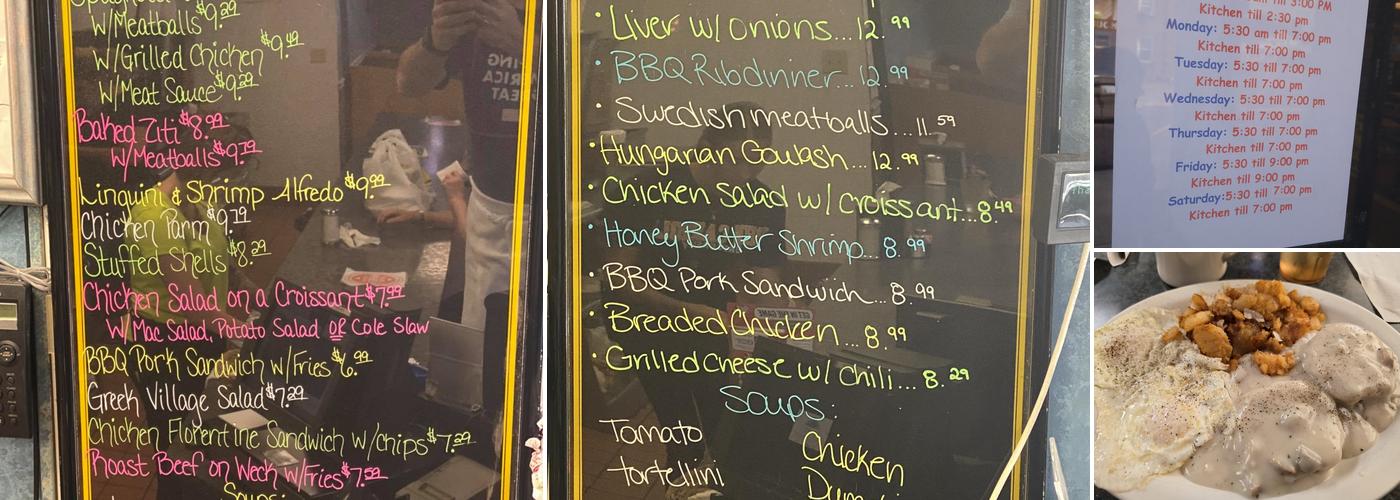 W/Meatballs $9.29
W/Grilled Chicken $9.49
W/Meat Sauce $9.29
Baked Ziti $8.99
W/Meatballs $9.79
Linguini & Shrimp Alfredo $9.99
Chicken Parm $9.79
Stuffed Shells $8.29
Chicken Salad on a Croissant $7.99
W/Mac Salad, Potato Salad or Cole Slaw
BBQ Pork Sandwich w/Fries $6.99
Greek Village Salad $7.29
Chicken Florentine Sandwich w/chips $7.29
Roast Beef on Weck w/Fries $7.59
Soups:
• Liver w/ onions...12.99
• BBQ Rib dinner...12.99
• Swedish meatballs...11.59
• Hungarian Goulash...12.99
• Chicken Salad w/ croissant...8.49
• Honey Butter Shrimp...8.99
• BBQ Pork Sandwich...8.99
• Breaded Chicken...8.99
• Grilled Cheese w/ chili...8.29
Soups:
Tomato
tortellini
Chicken
till 3:00 PM
Kitchen till 2:30 pm
Monday: 5:30 am till 7:00 pm
Kitchen till 7:00 pm
Tuesday: 5:30 till 7:00 pm
Kitchen till 7:00 pm
Wednesday: 5:30 till 7:00 pm
Kitchen till 7:00 pm
Thursday: 5:30 till 7:00 pm
Kitchen till 7:00 pm
Friday: 5:30 till 9:00 pm
Kitchen till 9:00 pm
Saturday:5:30 till 7:00 pm
Kitchen till 7:00 pm